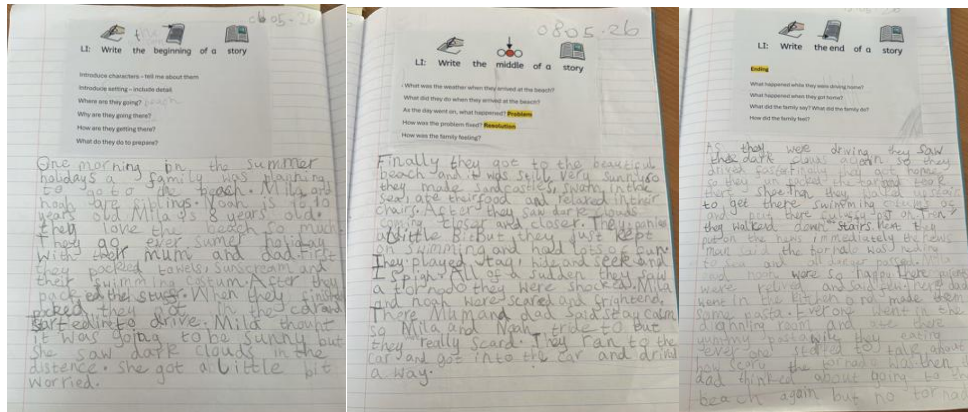 06.05.26
LI: Write the beginning of a story
Introduce characters – tell me about them
Introduce setting – include detail
Where are they going? beach
Why are they going there?
How are they getting there?
What do they do to prepare?
One morning in the summer
holidays a family was planning
to go to the beach. Mila and
noah are siblings. Noah is 10
years old Mila is 8 years old.
they love the beach so much.
They go ever sumer holiday
with their mum and dad. First
they packed towels, sunscream and
their swimming costum. After they
packed the stuff. When they finished
packed they got in the car and
started into drive. Mila thought
it was going to be sunny but
she saw dark clouds in the
distence. She got a little bit
worried.
08.05.26
LI: Write the middle of a story
What was the weather when they arrived at the beach?
What did they do when they arrived at the beach?
As the day went on, what happened? Problem
How was the problem fixed? Resolution
How was the family feeling?
Finally they got to the beautiful
beach and it was still very sunny so
they made sandcastles, swam in the
sea, ate their food and relaxed in their
chairs. After they saw dark clouds
coming closer and closer. They
a little bit but they just kept
on swimming and had lots of fun.
They played tag, hide and seek and
I spigh. All of a sudden they saw
a tornado they were shocked. Mila
and noah were scared and frightend.
There Mum and dad said stay calm
so Mila and Noah tride to but
they really scard. They ran to the
car and got into the car and driv
a way.
LI: Write the end of a story
Ending
What happened while they were driving home?
What happened when they got home?
What did the family say? What did the family do?
How did the family feel?
As they were driving they saw
the dark clouds again so they
drived faster finally they got home
so they the car and took
there shoe then they walked up stairs
to get there swimming costums
and put there on. Then
they walked down stairs. Next they
put on the news immediately the news
man said the tornado was
to sea and all danger passed.
and noah were so happy there
were relived and said there dad
went in the kitchen and made them
some pasta. Everone went in the
dinning room and ate there
yummy pasta while they eating
ever one started to talk about
how scary the tornado was then
dad thinked about going to the
beach again but no tornado